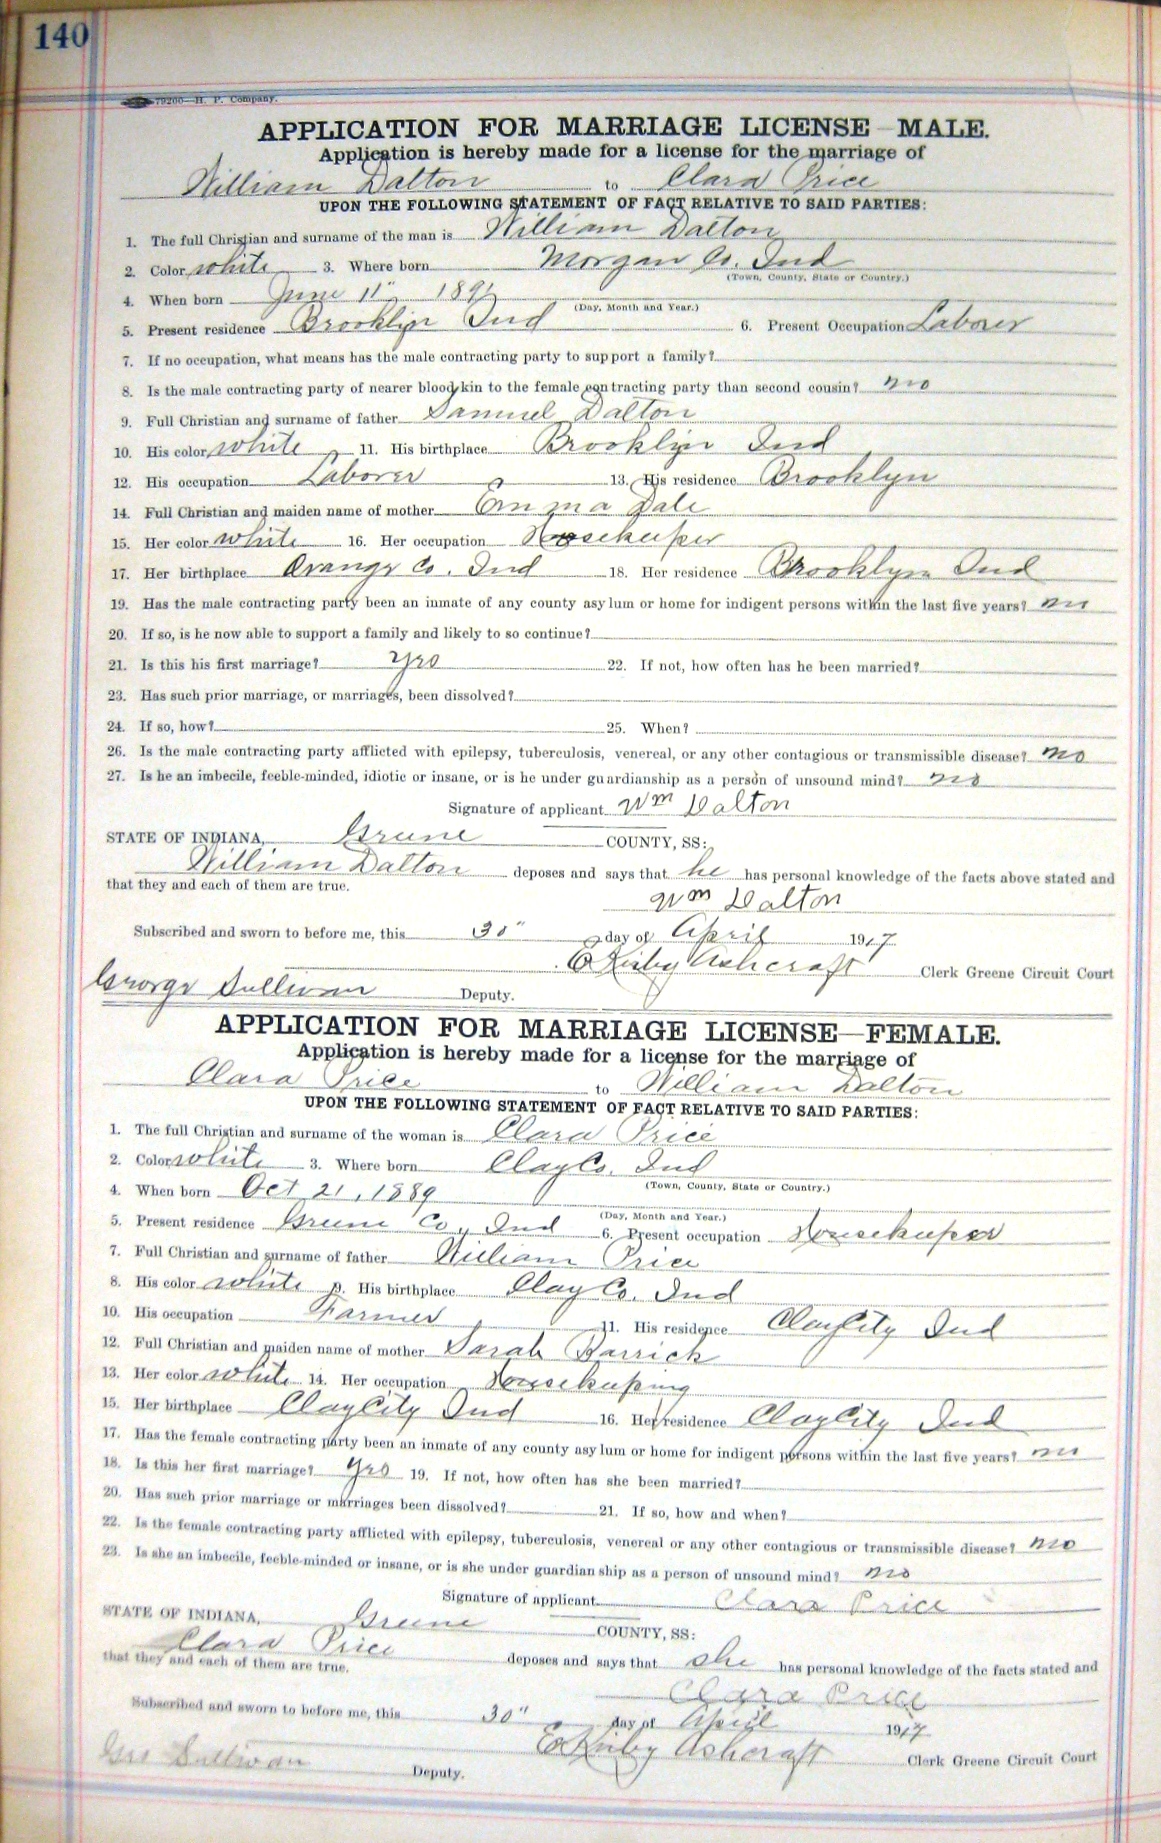 140
79200—H. P. Company.
APPLICATION FOR MARRIAGE LICENSE—MALE.
Application is hereby made for a license for the marriage of
William Dalton to Clara Price
UPON THE FOLLOWING STATEMENT OF FACT RELATIVE TO SAID PARTIES:
1. The full Christian and surname of the man is William Dalton
2. Color white 3. Where born Morgan Co. Ind
(Town, County, State or Country.)
4. When born June 11" 1891
(Day, Month and Year.)
5. Present residence Brooklyn Ind 6. Present Occupation Laborer
7. If no occupation, what means has the male contracting party to support a family?
8. Is the male contracting party of nearer blood kin to the female contracting party than second cousin? no
9. Full Christian and surname of father Samuel Dalton
10. His color white 11. His birthplace Brooklyn Ind
12. His occupation Laborer 13. His residence Brooklyn
14. Full Christian and maiden name of mother Emma Dale
15. Her color white 16. Her occupation Hosekeeper
17. Her birthplace Orange Co. Ind 18. Her residence Brooklyn Ind
19. Has the male contracting party been an inmate of any county asylum or home for indigent persons within the last five years? no
20. If so, is he now able to support a family and likely to so continue?
21. Is this his first marriage? yes 22. If not, how often has he been married?
23. Has such prior marriage, or marriages, been dissolved?
24. If so, how? 25. When?
26. Is the male contracting party afflicted with epilepsy, tuberculosis, venereal, or any other contagious or transmissible disease? no
27. Is he an imbecile, feeble-minded, idiotic or insane, or is he under guardianship as a person of unsound mind? no
Signature of applicant Wm Dalton
STATE OF INDIANA, Greene COUNTY, SS:
William Dalton deposes and says that he has personal knowledge of the facts above stated and
that they and each of them are true.
Wm Dalton
Subscribed and sworn to before me, this 30" day of April 1917
E Kirby Ashcraft Clerk Greene Circuit Court
George Sullivan Deputy.
APPLICATION FOR MARRIAGE LICENSE—FEMALE.
Application is hereby made for a license for the marriage of
Clara Price to William Dalton
UPON THE FOLLOWING STATEMENT OF FACT RELATIVE TO SAID PARTIES:
1. The full Christian and surname of the woman is Clara Price
2. Color white 3. Where born Clay Co. Ind
(Town, County, State or Country.)
4. When born Oct 21, 1889
(Day, Month and Year.)
5. Present residence Greene Co., Ind 6. Present occupation Housekeeper
7. Full Christian and surname of father William Price
8. His color white 9. His birthplace Clay Co. Ind
10. His occupation Farmer 11. His residence Clay City Ind
12. Full Christian and maiden name of mother Sarah Barrick
13. Her color white 14. Her occupation Housekeeping
15. Her birthplace Clay City Ind 16. Her residence Clay City Ind
17. Has the female contracting party been an inmate of any county asylum or home for indigent persons within the last five years? no
18. Is this her first marriage? yes 19. If not, how often has she been married?
20. Has such prior marriage or marriages been dissolved? 21. If so, how and when?
22. Is the female contracting party afflicted with epilepsy, tuberculosis, venereal or any other contagious or transmissible disease? no
23. Is she an imbecile, feeble-minded or insane, or is she under guardianship as a person of unsound mind? no
Signature of applicant Clara Price
STATE OF INDIANA, Greene COUNTY, SS:
Clara Price deposes and says that she has personal knowledge of the facts stated and
that they and each of them are true.
Clara Price
Subscribed and sworn to before me, this 30" day of April 1917
E Kirby Ashcraft Clerk Greene Circuit Court
Geo Sullivan Deputy.